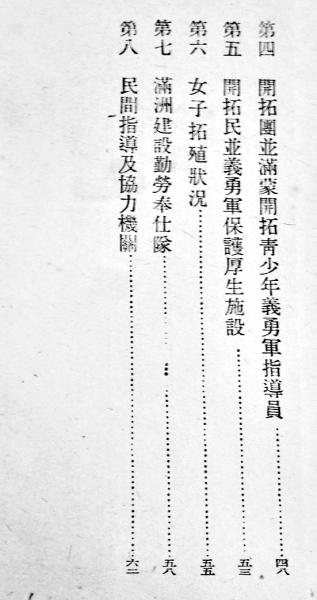 第四　開拓團並滿蒙開拓靑少年義勇軍指導員…………四八
第五　開拓民並義勇軍保護厚生施設…………五三
第六　女子拓殖狀況…………五五
第七　滿洲建設勤勞奉仕隊…………五八
第八　民間指導及協力機關…………六二